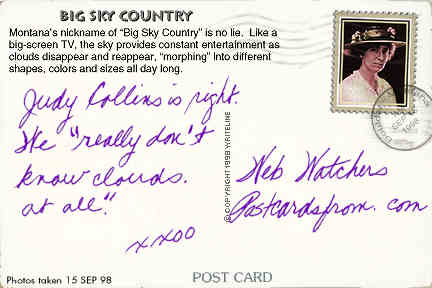 BIG SKY COUNTRY
Montana's nickname of "Big Sky Country" is no lie. Like a
big-screen TV, the sky provides constant entertainment as
clouds disappear and reappear, "morphing" into different
shapes, colors and sizes all day long.
Judy Collins is right.
We "really don't
know clouds.
at all".
xxoo
© COPYRIGHT 1998 WRITELINE
Web Watchers
Postcardsfrom.com
Photos taken 15 SEP 98
POST CARD